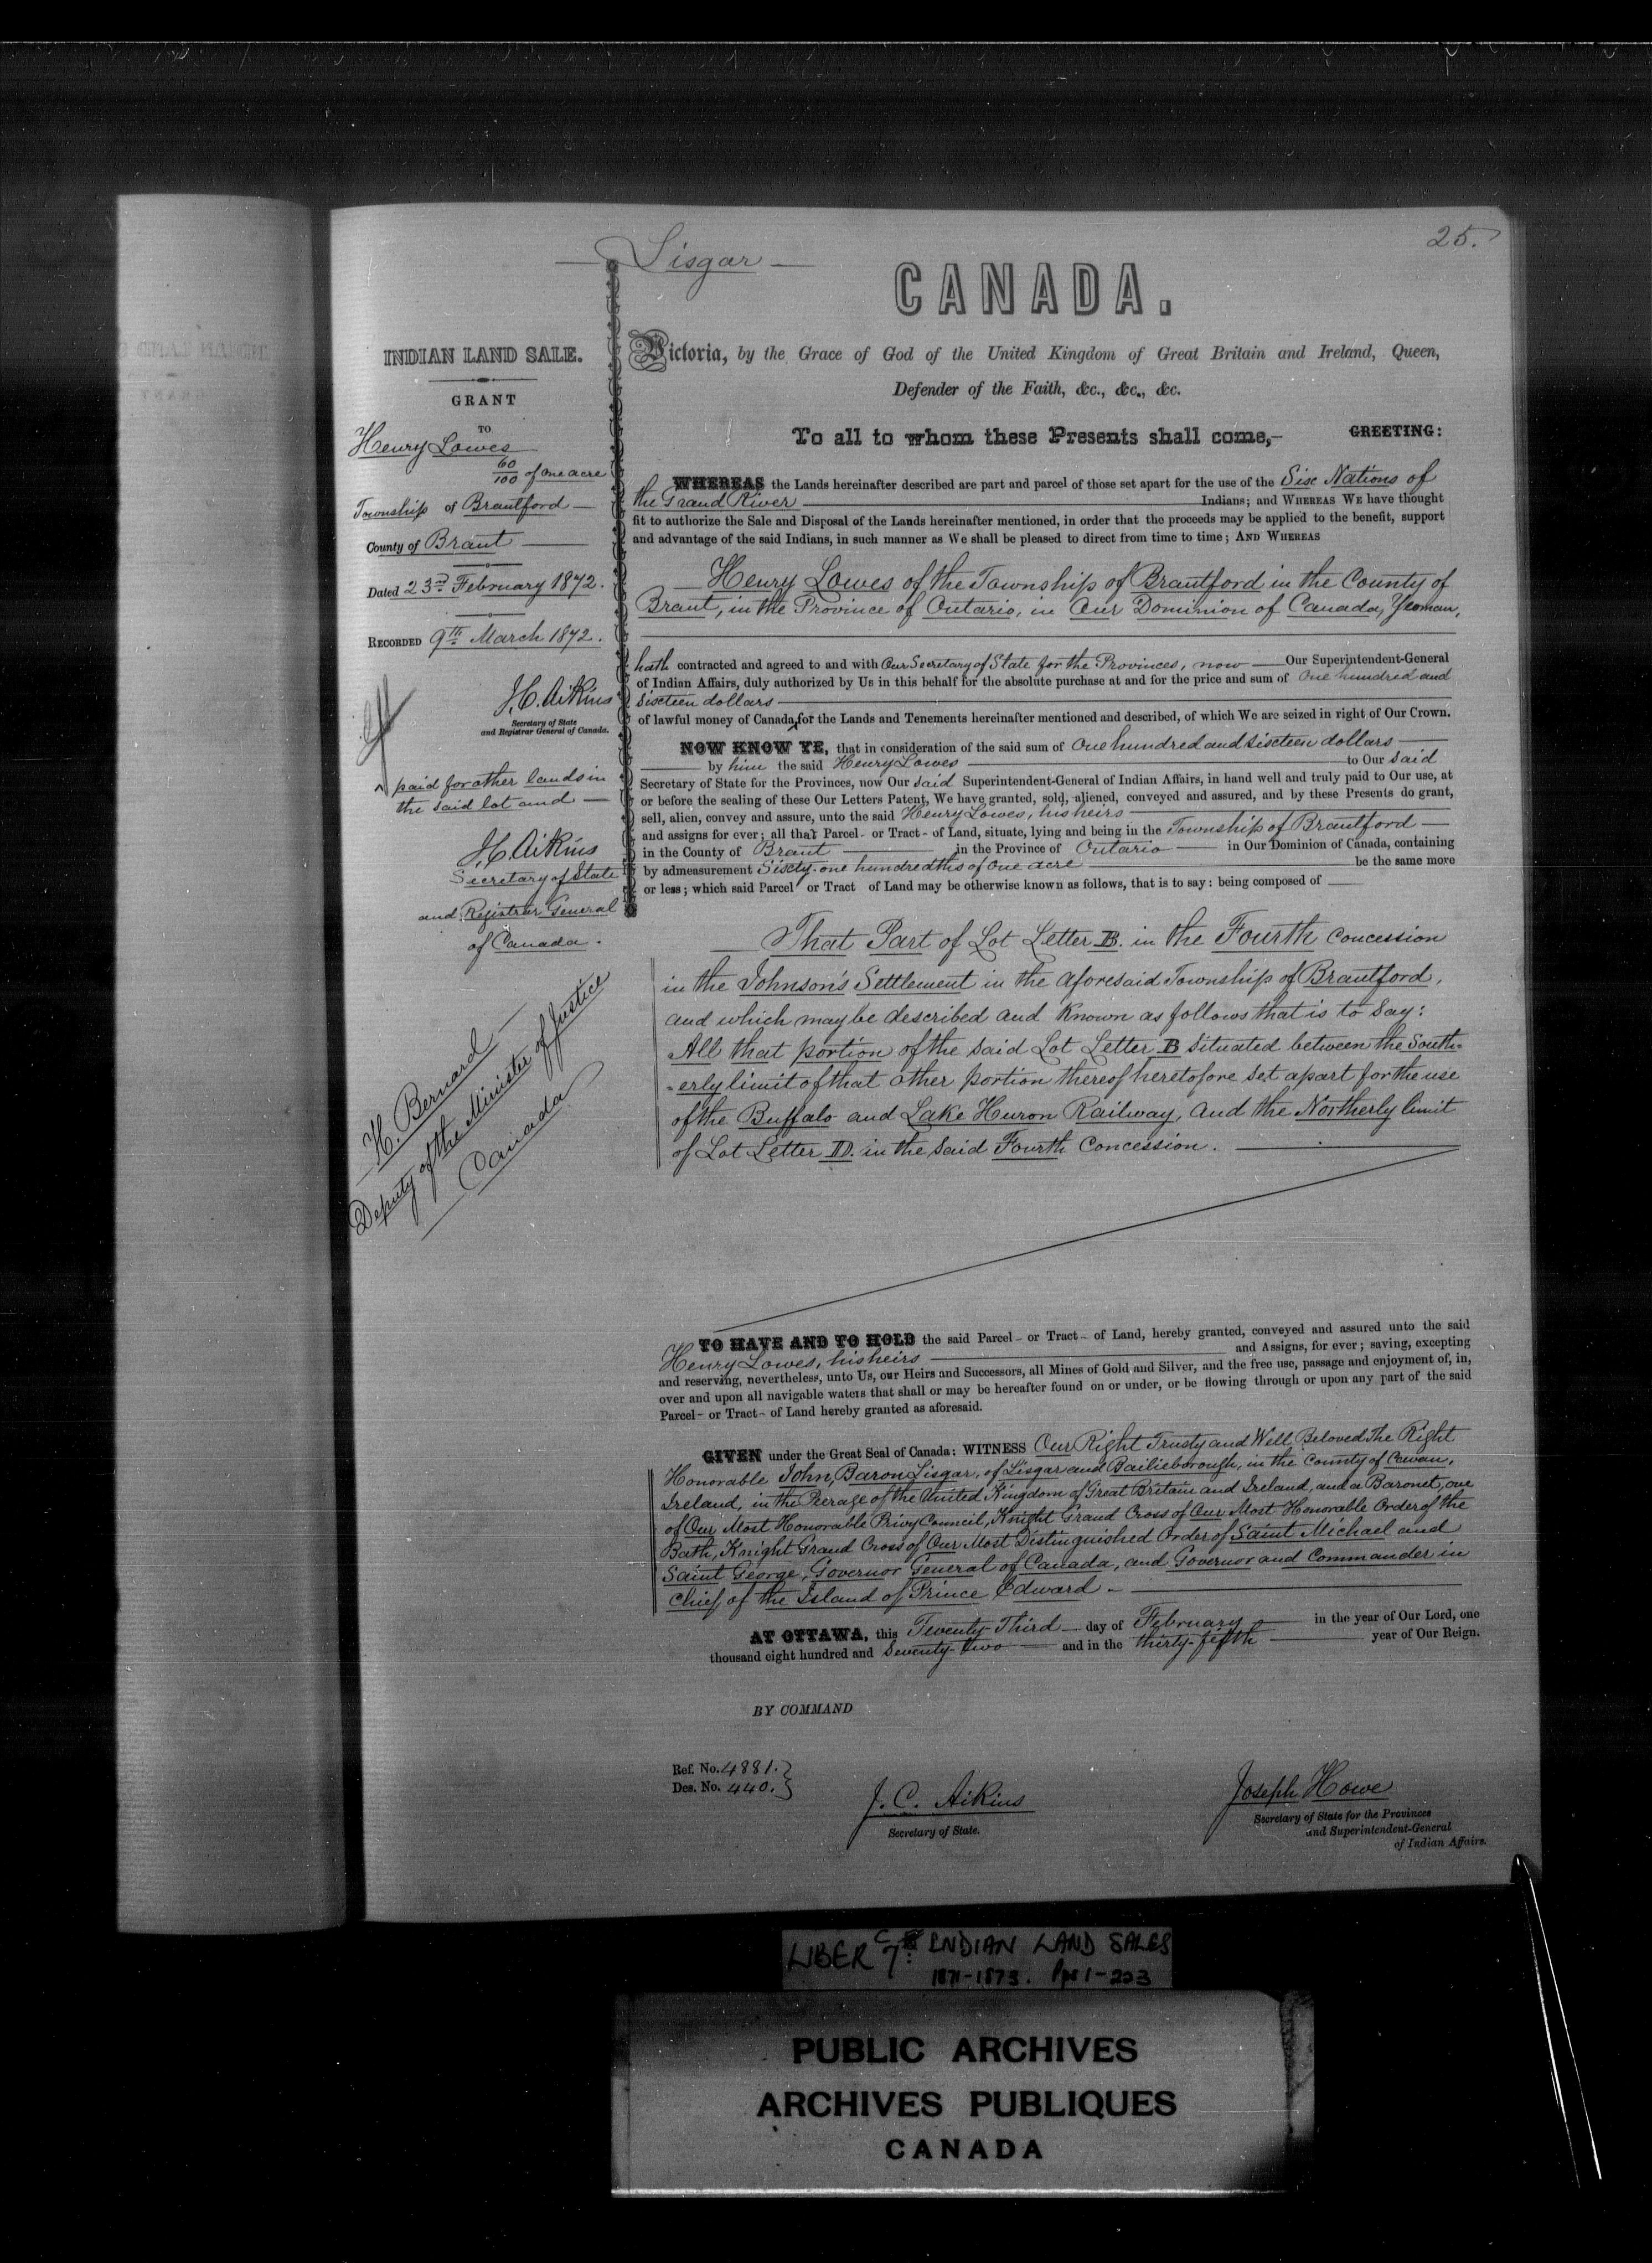 25.
Lisgar
CANADA.
Victoria, by the Grace of God of the United Kingdom of Great Britain and Ireland, Queen,
Defender of the Faith, &c., &c., &c.
To all to whom these Presents shall come,— GREETING:
INDIAN LAND SALE.
GRANT
TO
Henry Lowes
60/100 of One acre
Township of Brantford
County of Brant
Dated 23rd February 1872.
RECORDED 9th March 1872.
J.C. Aikins
Secretary of State
and Registrar General of Canada.
^ paid for other lands in
the said lot and
J.C. Aikins
Secretary of State
and Registrar General
of Canada.
H. Bernard
Deputy of the Minister of Justice
Canada
WHEREAS the Lands hereinafter described are part and parcel of those set apart for the use of the Six Nations of
the Grand River Indians; and WHEREAS WE have thought
fit to authorize the Sale and Disposal of the Lands hereinafter mentioned, in order that the proceeds may be applied to the benefit, support
and advantage of the said Indians, in such manner as We shall be pleased to direct from time to time; AND WHEREAS
Henry Lowes of the Township of Brantford in the County of
Brant, in the Province of Ontario, in Our Dominion of Canada, Yeoman,
hath contracted and agreed to and with Our Secretary of State for the Provinces, now Our Superintendent-General
of Indian Affairs, duly authorized by Us in this behalf for the absolute purchase at and for the price and sum of One hundred and
Sixteen dollars
of lawful money of Canada, for the Lands and Tenements hereinafter mentioned and described, of which We are seized in right of Our Crown.
NOW KNOW YE, that in consideration of the said sum of One hundred and sixteen dollars
by him the said Henry Lowes to Our said
Secretary of State for the Provinces, now Our said Superintendent-General of Indian Affairs, in hand well and truly paid to Our use, at
or before the sealing of these Our Letters Patent, We have granted, sold, aliened, conveyed and assured, and by these Presents do grant,
sell, alien, convey and assure, unto the said Henry Lowes, his heirs
and assigns for ever; all that Parcel - or Tract - of Land, situate, lying and being in the Township of Brantford
in the County of Brant in the Province of Ontario in Our Dominion of Canada, containing
by admeasurement Sixty-one hundredths of one acre be the same more
or less; which said Parcel or Tract of Land may be otherwise known as follows, that is to say: being composed of
That Part of Lot Letter B. in the Fourth Concession
in the Johnson's Settlement in the aforesaid Township of Brantford,
and which may be described and known as follows that is to say:
All that portion of the said Lot Letter B situated between the South=
=erly limit of that other portion thereof heretofore set apart for the use
of the Buffalo and Lake Huron Railway, and the Northerly limit
of Lot Letter D. in the said Fourth Concession.
TO HAVE AND TO HOLD the said Parcel - or Tract - of Land, hereby granted, conveyed and assured unto the said
Henry Lowes, his heirs and Assigns, for ever; saving, excepting
and reserving, nevertheless, unto Us, our Heirs and Successors, all Mines of Gold and Silver, and the free use, passage and enjoyment of, in,
over and upon all navigable waters that shall or may be hereafter found on or under, or be flowing through or upon any part of the said
Parcel - or Tract - of Land hereby granted as aforesaid.
GIVEN under the Great Seal of Canada: WITNESS Our Right Trusty and Well Beloved The Right
Honorable John, Baron Lisgar, of Lisgar and Bailieborough, in the County of Cavan,
Ireland, in the Peerage of the United Kingdom of Great Britain and Ireland, and a Baronet, one
of Our Most Honorable Privy Council, Knight Grand Cross of Our Most Honorable Order of the
Bath, Knight Grand Cross of Our Most Distinguished Order of Saint Michael and
Saint George, Governor General of Canada, and Governor and Commander in
Chief of the Island of Prince Edward -
AT OTTAWA, this Twenty-Third day of February in the year of Our Lord, one
thousand eight hundred and Seventy-two and in the thirty-fifth year of Our Reign.
BY COMMAND
Ref. No. 4881.
Des. No. 440.
J. C. Aikins
Secretary of State.
Joseph Howe
Secretary of State for the Provinces
and Superintendent-General
of Indian Affairs.
LIBER C 7: INDIAN LAND SALES
1871-1873. Pps 1-223
PUBLIC ARCHIVES
ARCHIVES PUBLIQUES
CANADA